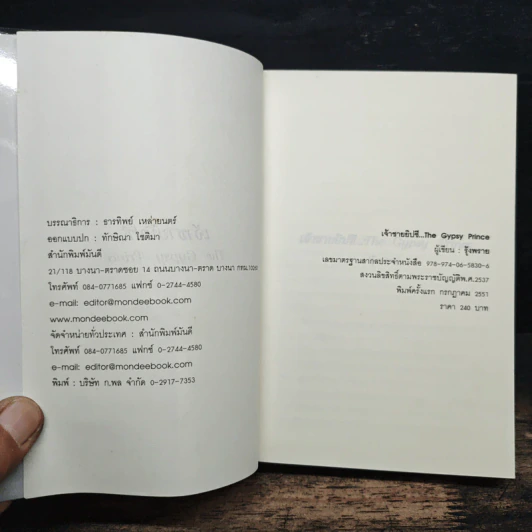 บรรณาธิการ : ธารทิพย์ เหล่ายนตร์
ออกแบบปก : ทักษิณา โชติมา
สำนักพิมพ์มันดี
21/118 บางนา-ตราดซอย 14 ถนนบางนา-ตราด บางนา กทม.10260
โทรศัพท์ 084-0771685 แฟกซ์ 0-2744-4580
e-mail: editor@mondeebook.com
www.mondeebook.com
จัดจำหน่ายทั่วประเทศ : สำนักพิมพ์มันดี
โทรศัพท์ 084-0771685 แฟกซ์ 0-2744-4580
e-mail: editor@mondeebook.com
พิมพ์ : บริษัท ก.พล จำกัด 0-2917-7353
เจ้าชายยิปซี...The Gypsy Prince
ผู้เขียน : รุ้งพราย
เลขมาตรฐานสากลประจำหนังสือ 978-974-06-5830-6
สงวนลิขสิทธิ์ตามพระราชบัญญัติพ.ศ.2537
พิมพ์ครั้งแรก กรกฎาคม 2551
ราคา 240 บาท